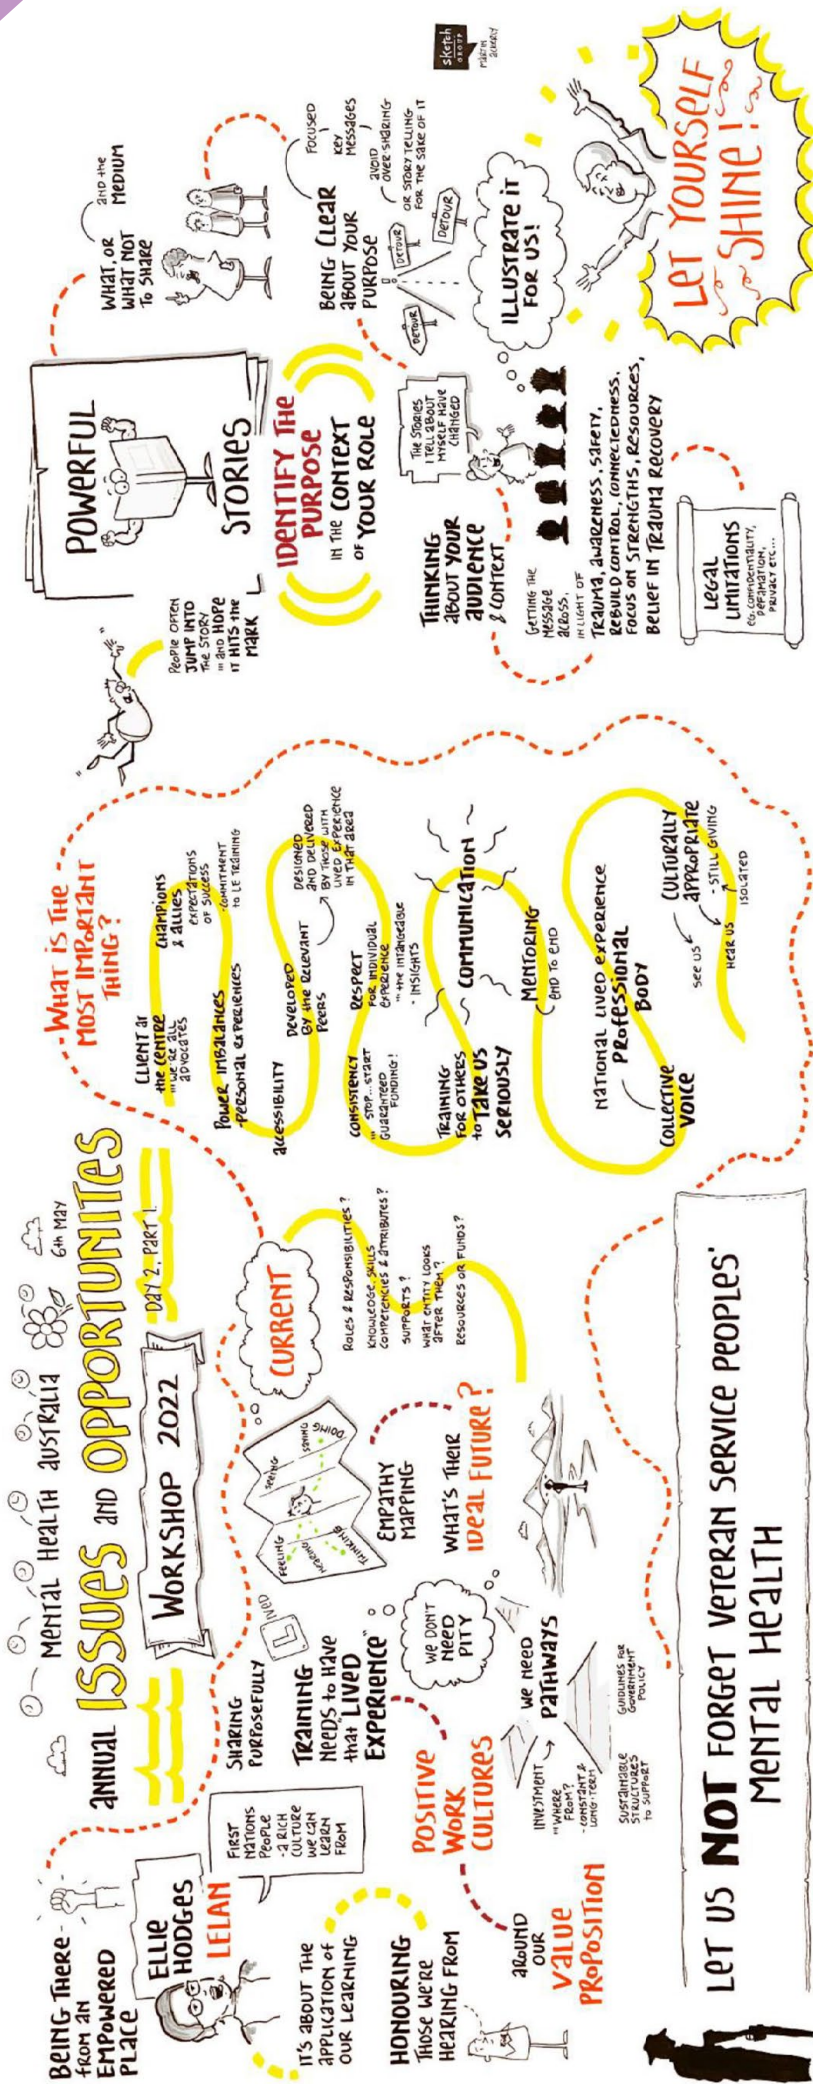 MENTAL HEALTH AUSTRALIA
6TH MAY
ANNUAL ISSUES AND OPPORTUNITES
WORKSHOP 2022
DAY 2, PART 1.
BEING THERE
FROM AN
EMPOWERED
PLACE
ELLIE
HODGES
LELAN
FIRST
NATIONS
PEOPLE
- A RICH
CULTURE
WE CAN
LEARN
FROM
IT'S ABOUT THE
APPLICATION OF
OUR LEARNING
HONOURING
THOSE WE'RE
HEARING FROM
AROUND
OUR
VALUE
PROPOSITION
SHARING
PURPOSEFULLY
LIVED
TRAINING
NEEDS to HAVE
that "LIVED
EXPERIENCE"
POSITIVE
WORK
CULTURES
WE DON'T
NEED
PITY
WE NEED
PATHWAYS
INVESTMENT
"" WHERE
FROM?
- CONSTANT &
LONG-TERM
SUSTAINABLE
STRUCTURES
to SUPPORT
GUIDLINES FOR
GOVERNMENT
POLICY
FEELING
HEARING
THINKING
SEEING
SAYING
DOING
EMPATHY
MAPPING
WHAT'S THEIR
IDEAL FUTURE?
CURRENT
ROLES & RESPONSIBILITIES?
KNOWLEDGE, SKILLS
COMPETENCIES & ATTRIBUTES?
SUPPORTS?
WHAT ENTITY LOOKS
AFTER THEM?
RESOURCES OR FUNDS?
WHAT IS THE
MOST IMPORTANT
THING?
CLIENT AT
the CENTRE
"" WE'RE ALL
ADVOCATES
CHAMPIONS
& ALLIES
EXPECTATIONS
OF SUCCESS
- COMMITMENT
to LE TRAINING
POWER IMBALANCES
- PERSONAL EXPERIENCES
ACCESSIBILITY
DEVELOPED
BY the RELEVANT
PEERS
DESIGNED
AND DELIVERED
BY THOSE WITH
LIVED EXPERIENCE
IN THAT AREA
CONSISTENCY
"" STOP... START
GUARANTEED
FUNDING!
RESPECT
FOR INDIVIDUAL
EXPERIENCE
"" the INTANGEABLE
- INSIGHTS
TRAINING
FOR OTHERS
to TAKE US
SERIOUSLY
COMMUNICATION
MENTORING
END TO END
NATIONAL LIVED EXPERIENCE
PROFESSIONAL
BODY
COLLECTIVE
VOICE
CULTURALLY
APPROPRIATE
SEE US
HEAR US
- STILL GIVING
ISOLATED
LET US NOT FORGET VETERAN SERVICE PEOPLES'
MENTAL HEALTH
PEOPLE OFTEN
JUMP INTO
THE STORY
"" AND HOPE
IT HITS the
MARK
POWERFUL
STORIES
WHAT, OR
WHAT NOT
TO SHARE
AND the
MEDIUM
IDENTIFY THE
PURPOSE
IN THE CONTEXT
OF YOUR ROLE
BEING CLEAR
ABOUT YOUR
PURPOSE
FOCUSED
KEY
MESSAGES
AVOID
OVER-SHARING
OR STORY TELLING
FOR THE SAKE OF IT
DETOUR
DETOUR
DETOUR
THINKING
ABOUT YOUR
AUDIENCE
& CONTEXT
THE STORIES
I TELL ABOUT
MYSELF HAVE
CHANGED
ILLUSTRATE IT
FOR US!
GETTING THE
MESSAGE
ACROSS,
IN LIGHT OF
TRAUMA, AWARENESS, SAFETY,
REBUILD CONTROL, CONNECTEDNESS,
FOCUS ON STRENGTHS, RESOURCES,
BELIEF IN TRAUMA RECOVERY
LEGAL
LIMITATIONS
EG. CONFIDENTIALITY,
DEFAMATION,
PRIVACY ETC...
LET YOURSELF
SHINE!
sketch
GROUP